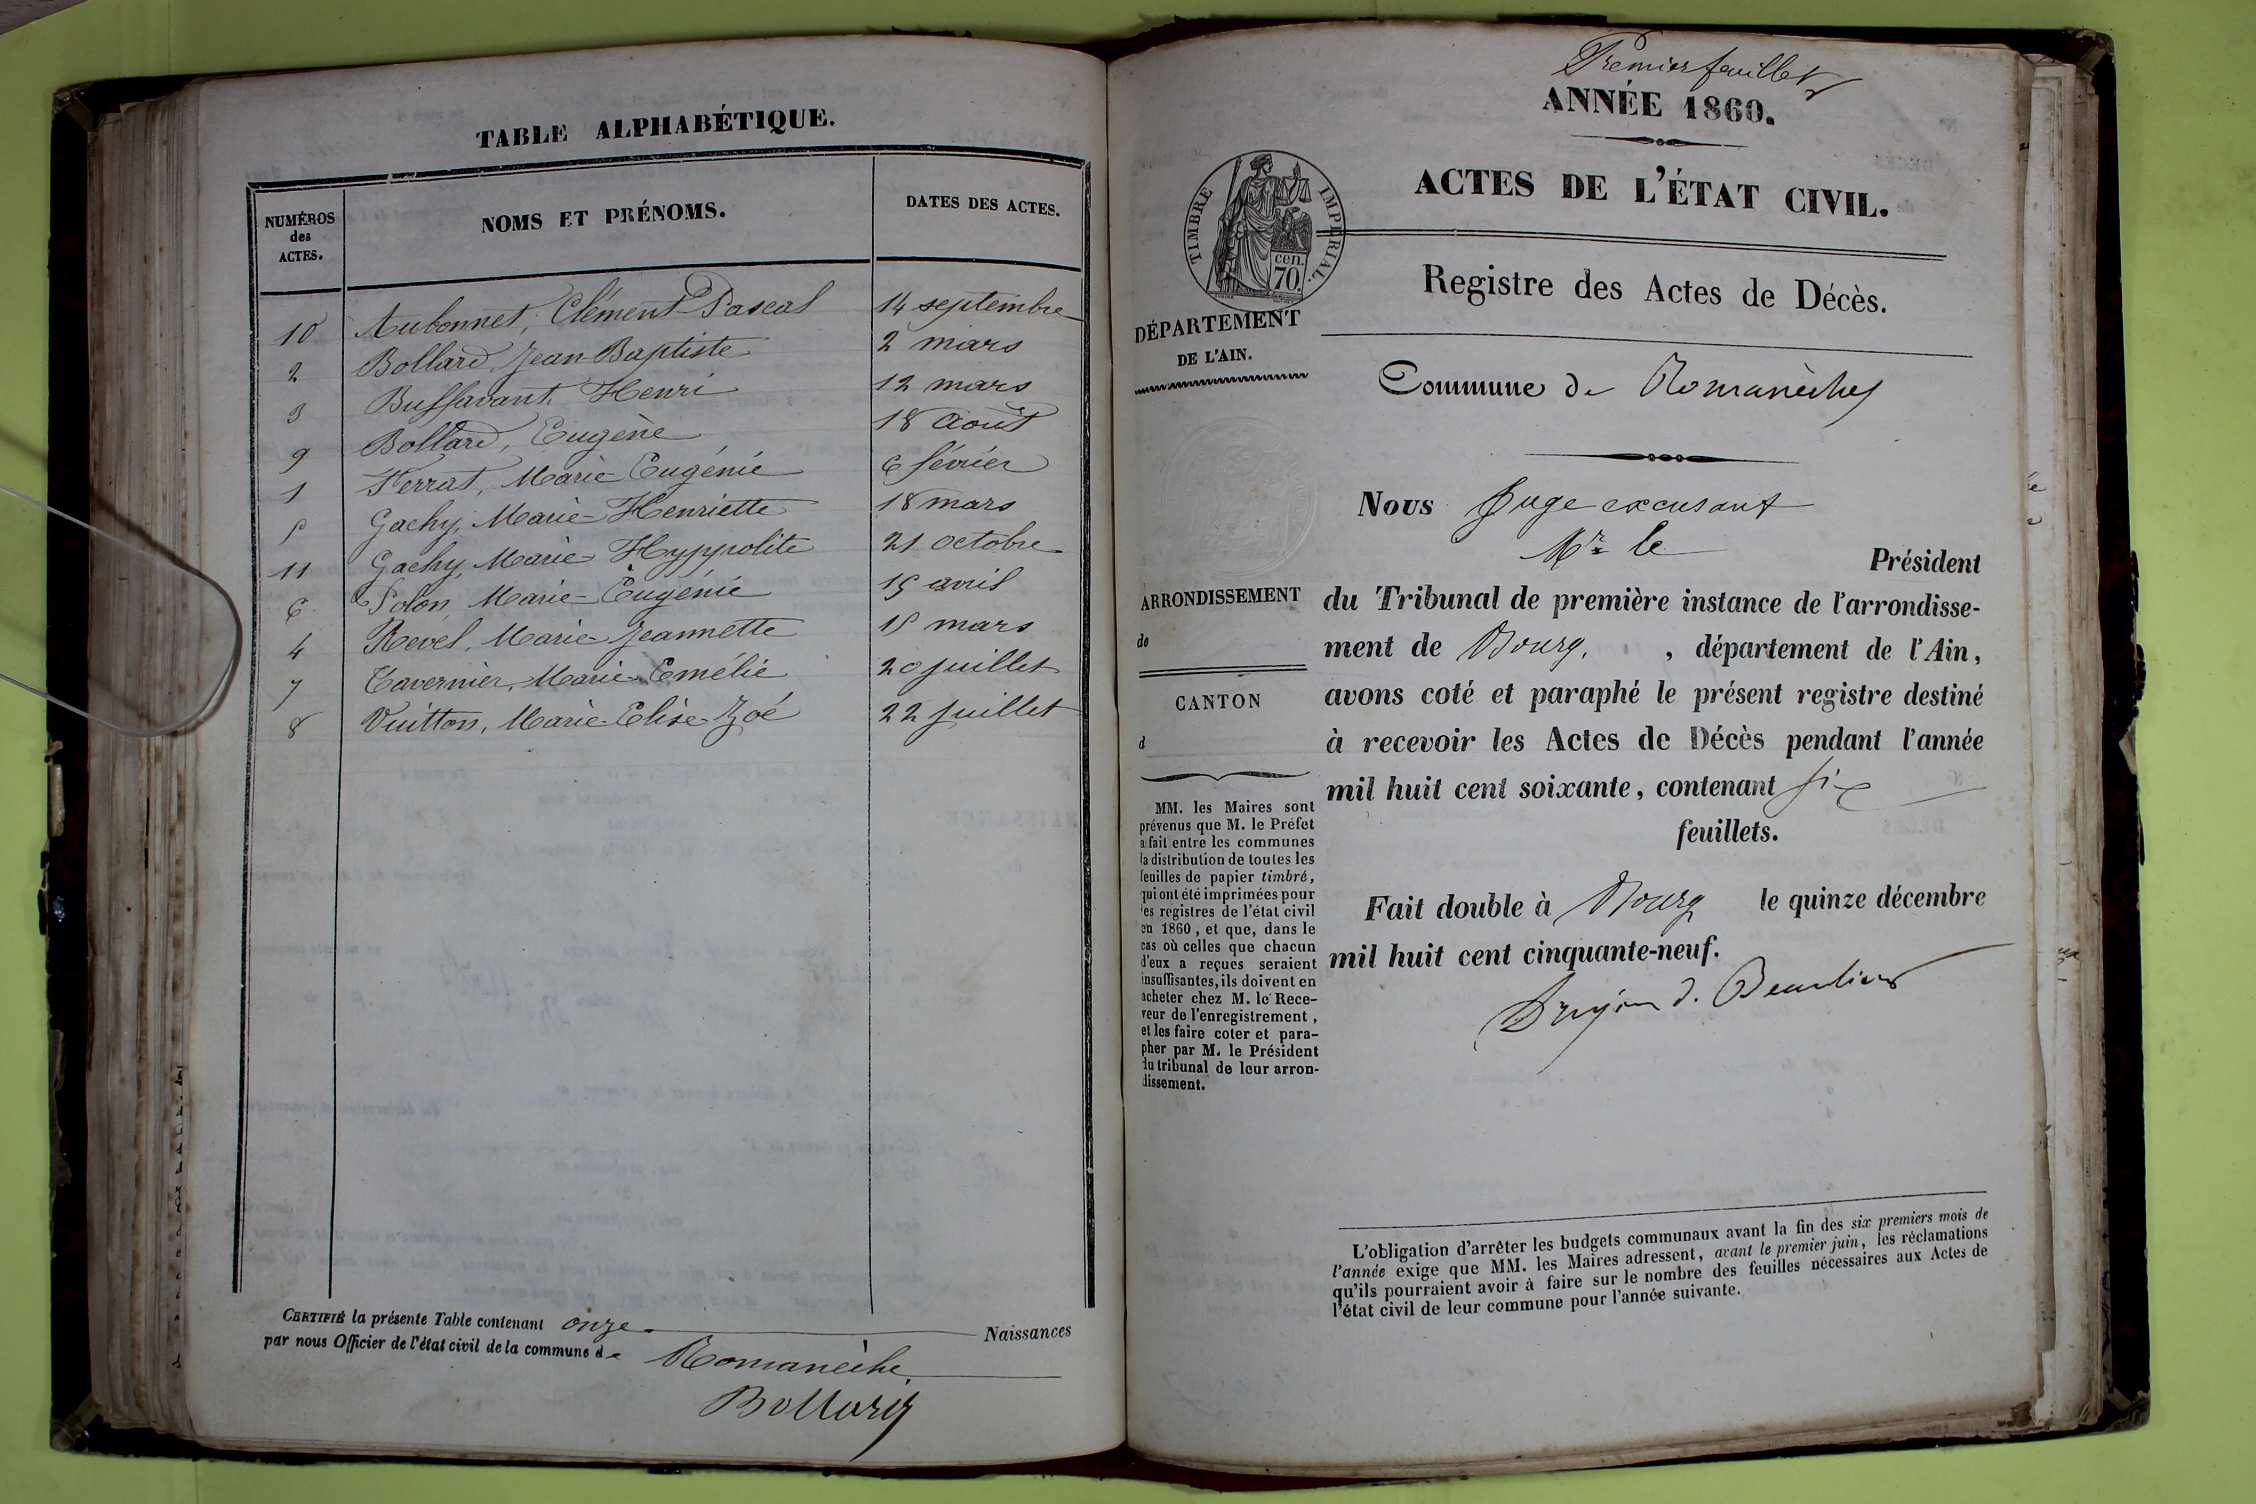 TABLE ALPHABÉTIQUE.
NUMÉROS
des
ACTES.
NOMS ET PRÉNOMS.
DATES DES ACTES.
10 Aubonnet, Clément Pascal 14 septembre
2 Bollard, Jean-Baptiste 2 mars
3 Buffavant, Henri 12 mars
9 Bollard, Eugène 18 août
1 Ferrat, Marie-Eugénie 6 février
5 Gachy, Marie-Henriette 18 mars
11 Gachy, Marie-Hyppolite 21 octobre
6 Polon, Marie-Eugénie 15 avril
4 Revel, Marie-Jeannette 15 mars
7 Tavernier, Marie-Emélie 20 juillet
8 Vuitton, Marie-Elise-Zoé 22 juillet
CERTIFIÉ la présente Table contenant onze Naissances
par nous Officier de l'état civil de la commune de Romanèche
Premier feuillet
ANNÉE 1860.
ACTES DE L'ÉTAT CIVIL.
TIMBRE IMPÉRIAL.
cen.
70.
Registre des Actes de Décès.
DÉPARTEMENT
DE L'AIN.
Commune de Romanèche
Nous Juge excusant
Mr le
Président
ARRONDISSEMENT
de
CANTON
d
du Tribunal de première instance de l'arrondisse-
ment de Bourg, , département de l'Ain,
avons coté et paraphé le présent registre destiné
à recevoir les Actes de Décès pendant l'année
mil huit cent soixante, contenant six
feuillets.
Fait double à Bourg le quinze décembre
mil huit cent cinquante-neuf.
MM. les Maires sont
prévenus que M. le Préfet
a fait entre les communes
la distribution de toutes les
feuilles de papier timbré,
qui ont été imprimées pour
les registres de l'état civil
en 1860, et que, dans le
cas où celles que chacun
d'eux a reçues seraient
insuffisantes, ils doivent en
acheter chez M. le Rece-
veur de l'enregistrement,
et les faire coter et para-
pher par M. le Président
du tribunal de leur arron-
dissement.
L'obligation d'arrêter les budgets communaux avant la fin des six premiers mois de
l'année exige que MM. les Maires adressent, avant le premier juin, les réclamations
qu'ils pourraient avoir à faire sur le nombre des feuilles nécessaires aux Actes de
l'état civil de leur commune pour l'année suivante.